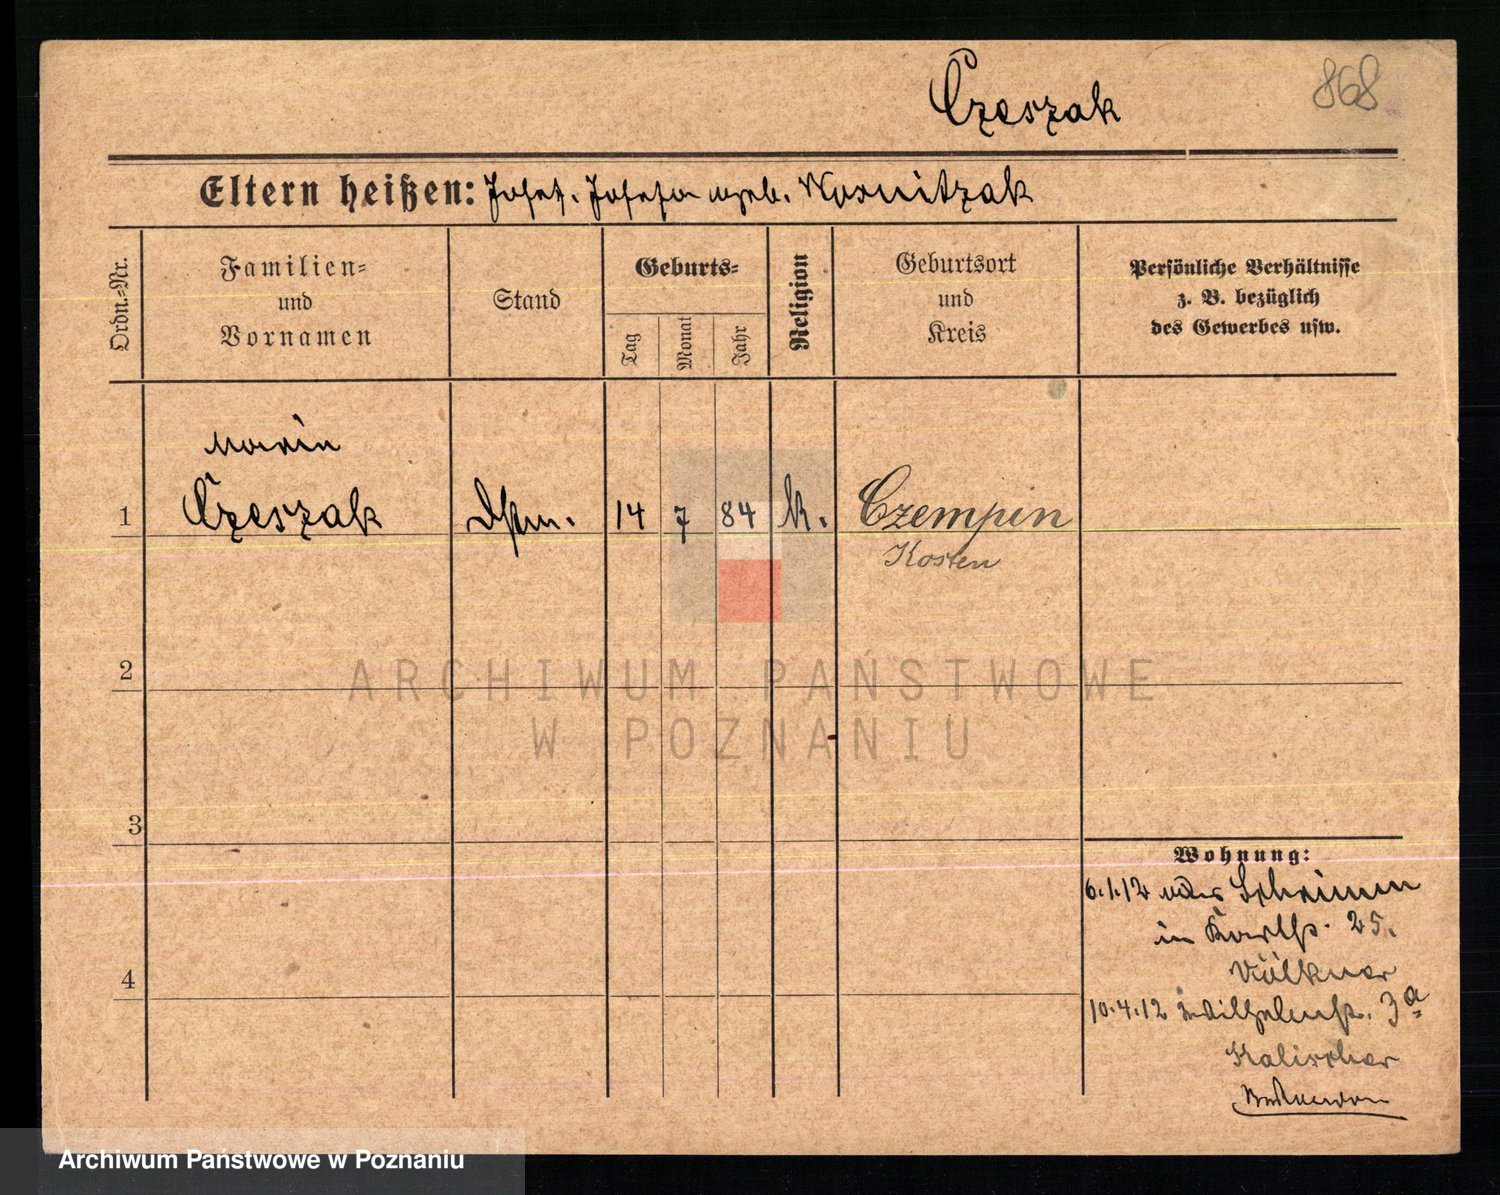 Czeszak
868
Eltern heißen: Josef. Josefa geb. Woznitzak
Ordn.=Nr.
Familien=
und
Vornamen
Stand
Geburts=
Tag
Monat
Jahr
Religion
Geburtsort
und
Kreis
Persönliche Verhältnisse
z. B. bezüglich
des Gewerbes usw.
Maria
1 Czeszak Dstm. 14 7 84 k. Czempin
Kosten
2
3
4
Wohnung:
6.1.12 Schrimm
in 25.
Völkner
10.4.12 Wilhelmstr. 3a
Kalischer
ARCHIWUM PAŃSTWOWE
W POZNANIU
Archiwum Państwowe w Poznaniu